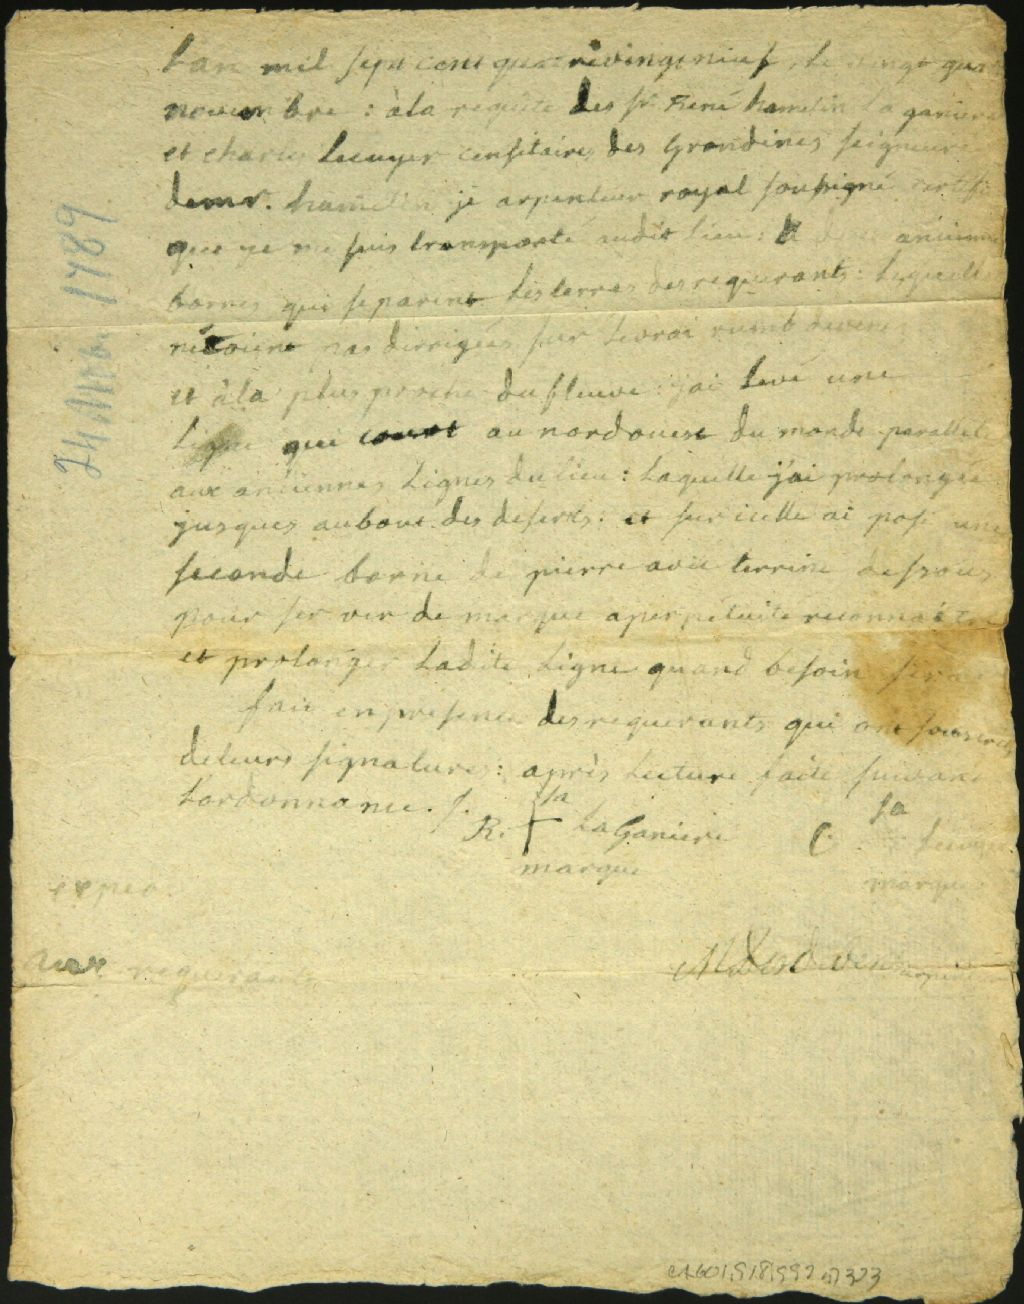 Lan mil sept cent quatrevingt neuf, le vingt quatre
novembre : à la requête des sr. René hamelin La ganiere
et charles Lecuyer censitaires des Grondines seigneurie
de mr. hamelin je arpenteur royal soussigné certifie
que je me suis transporté audit lieu : à deux anciennes
bornes qui separent les terres des requerants : Lesquelles
pas dirrigées sur le vrai rumb de vent
et à la plus proche du fleuve j'ai levé une
Ligne qui court au nord ouest du monde parallele
aux anciennes Lignes du lieu : Laquelle j'ai prolongée
jusques au bout des deserts : et sur icelle ai posé une
seconde borne de pierre avec terrine dessous
pour servir de marque a perpetuité reconnaitre
et prolonger Ladite Ligne quand besoin sera
fait en presence des requerants qui ont
de leurs signatures : après Lecture faite suivant
Lordonnance . /.
R. + sa LaGaniere
marque
C. sa Lecuyer
marque
exped
aux requerants
24 9bre 1789
CA601,S18,S992 n7323